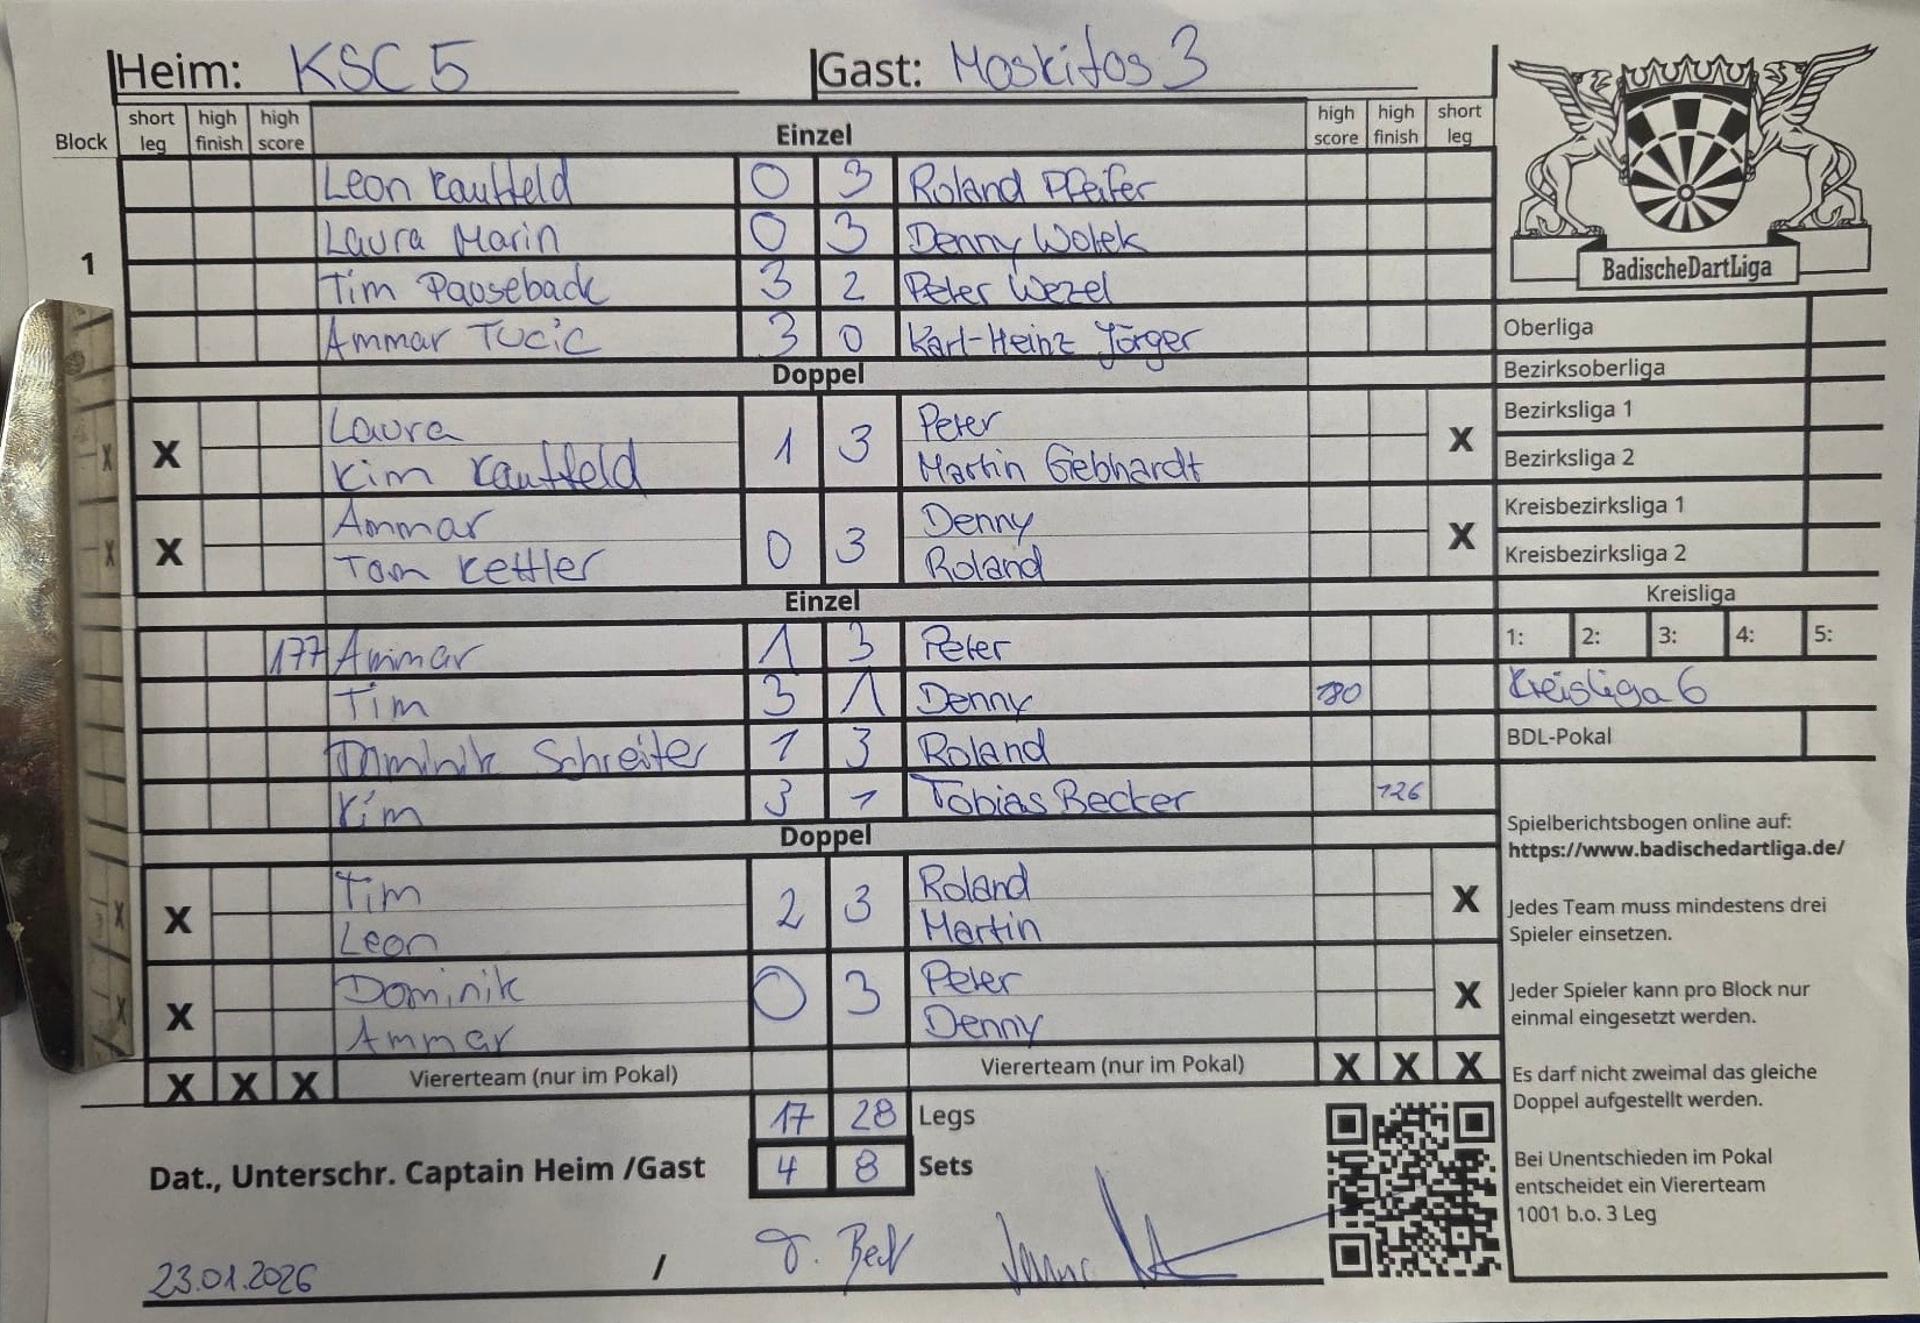 Heim: KSC 5 Gast: Moskitos 3
Block short leg high finish high score Einzel high score high finish short leg
Leon Kauffeld 0 3 Roland Pfeifer
Laura Marin 0 3 Denny Wolek
1
Tim Pauseback 3 2 Peter Wezel
Ammar Tucic 3 0 Karl-Heinz Jörger
Doppel
Laura
Kim Kauffeld
X 1 3
Peter
Martin Gebhardt
X
Ammar
Tom Kettler
X 0 3
Denny
Roland
X
Einzel
177 Ammar 1 3 Peter
Tim 3 1 Denny 180
Dominik Schreiter 1 3 Roland
Kim 3 1 Tobias Becker 126
Doppel
Tim
Leon
X 2 3
Roland
Martin
X
Dominik
Ammar
X 0 3
Peter
Denny
X
X X X Viererteam (nur im Pokal) Viererteam (nur im Pokal) X X X
17 28 Legs
4 8 Sets
Dat., Unterschr. Captain Heim /Gast
23.01.2026 /
BadischeDartLiga
Oberliga
Bezirksoberliga
Bezirksliga 1
Bezirksliga 2
Kreisbezirksliga 1
Kreisbezirksliga 2
Kreisliga
1: 2: 3: 4: 5:
Kreisliga 6
BDL-Pokal
Spielberichtsbogen online auf:
https://www.badischedartliga.de/
Jedes Team muss mindestens drei
Spieler einsetzen.
Jeder Spieler kann pro Block nur
einmal eingesetzt werden.
Es darf nicht zweimal das gleiche
Doppel aufgestellt werden.
Bei Unentschieden im Pokal
entscheidet ein Viererteam
1001 b.o. 3 Leg